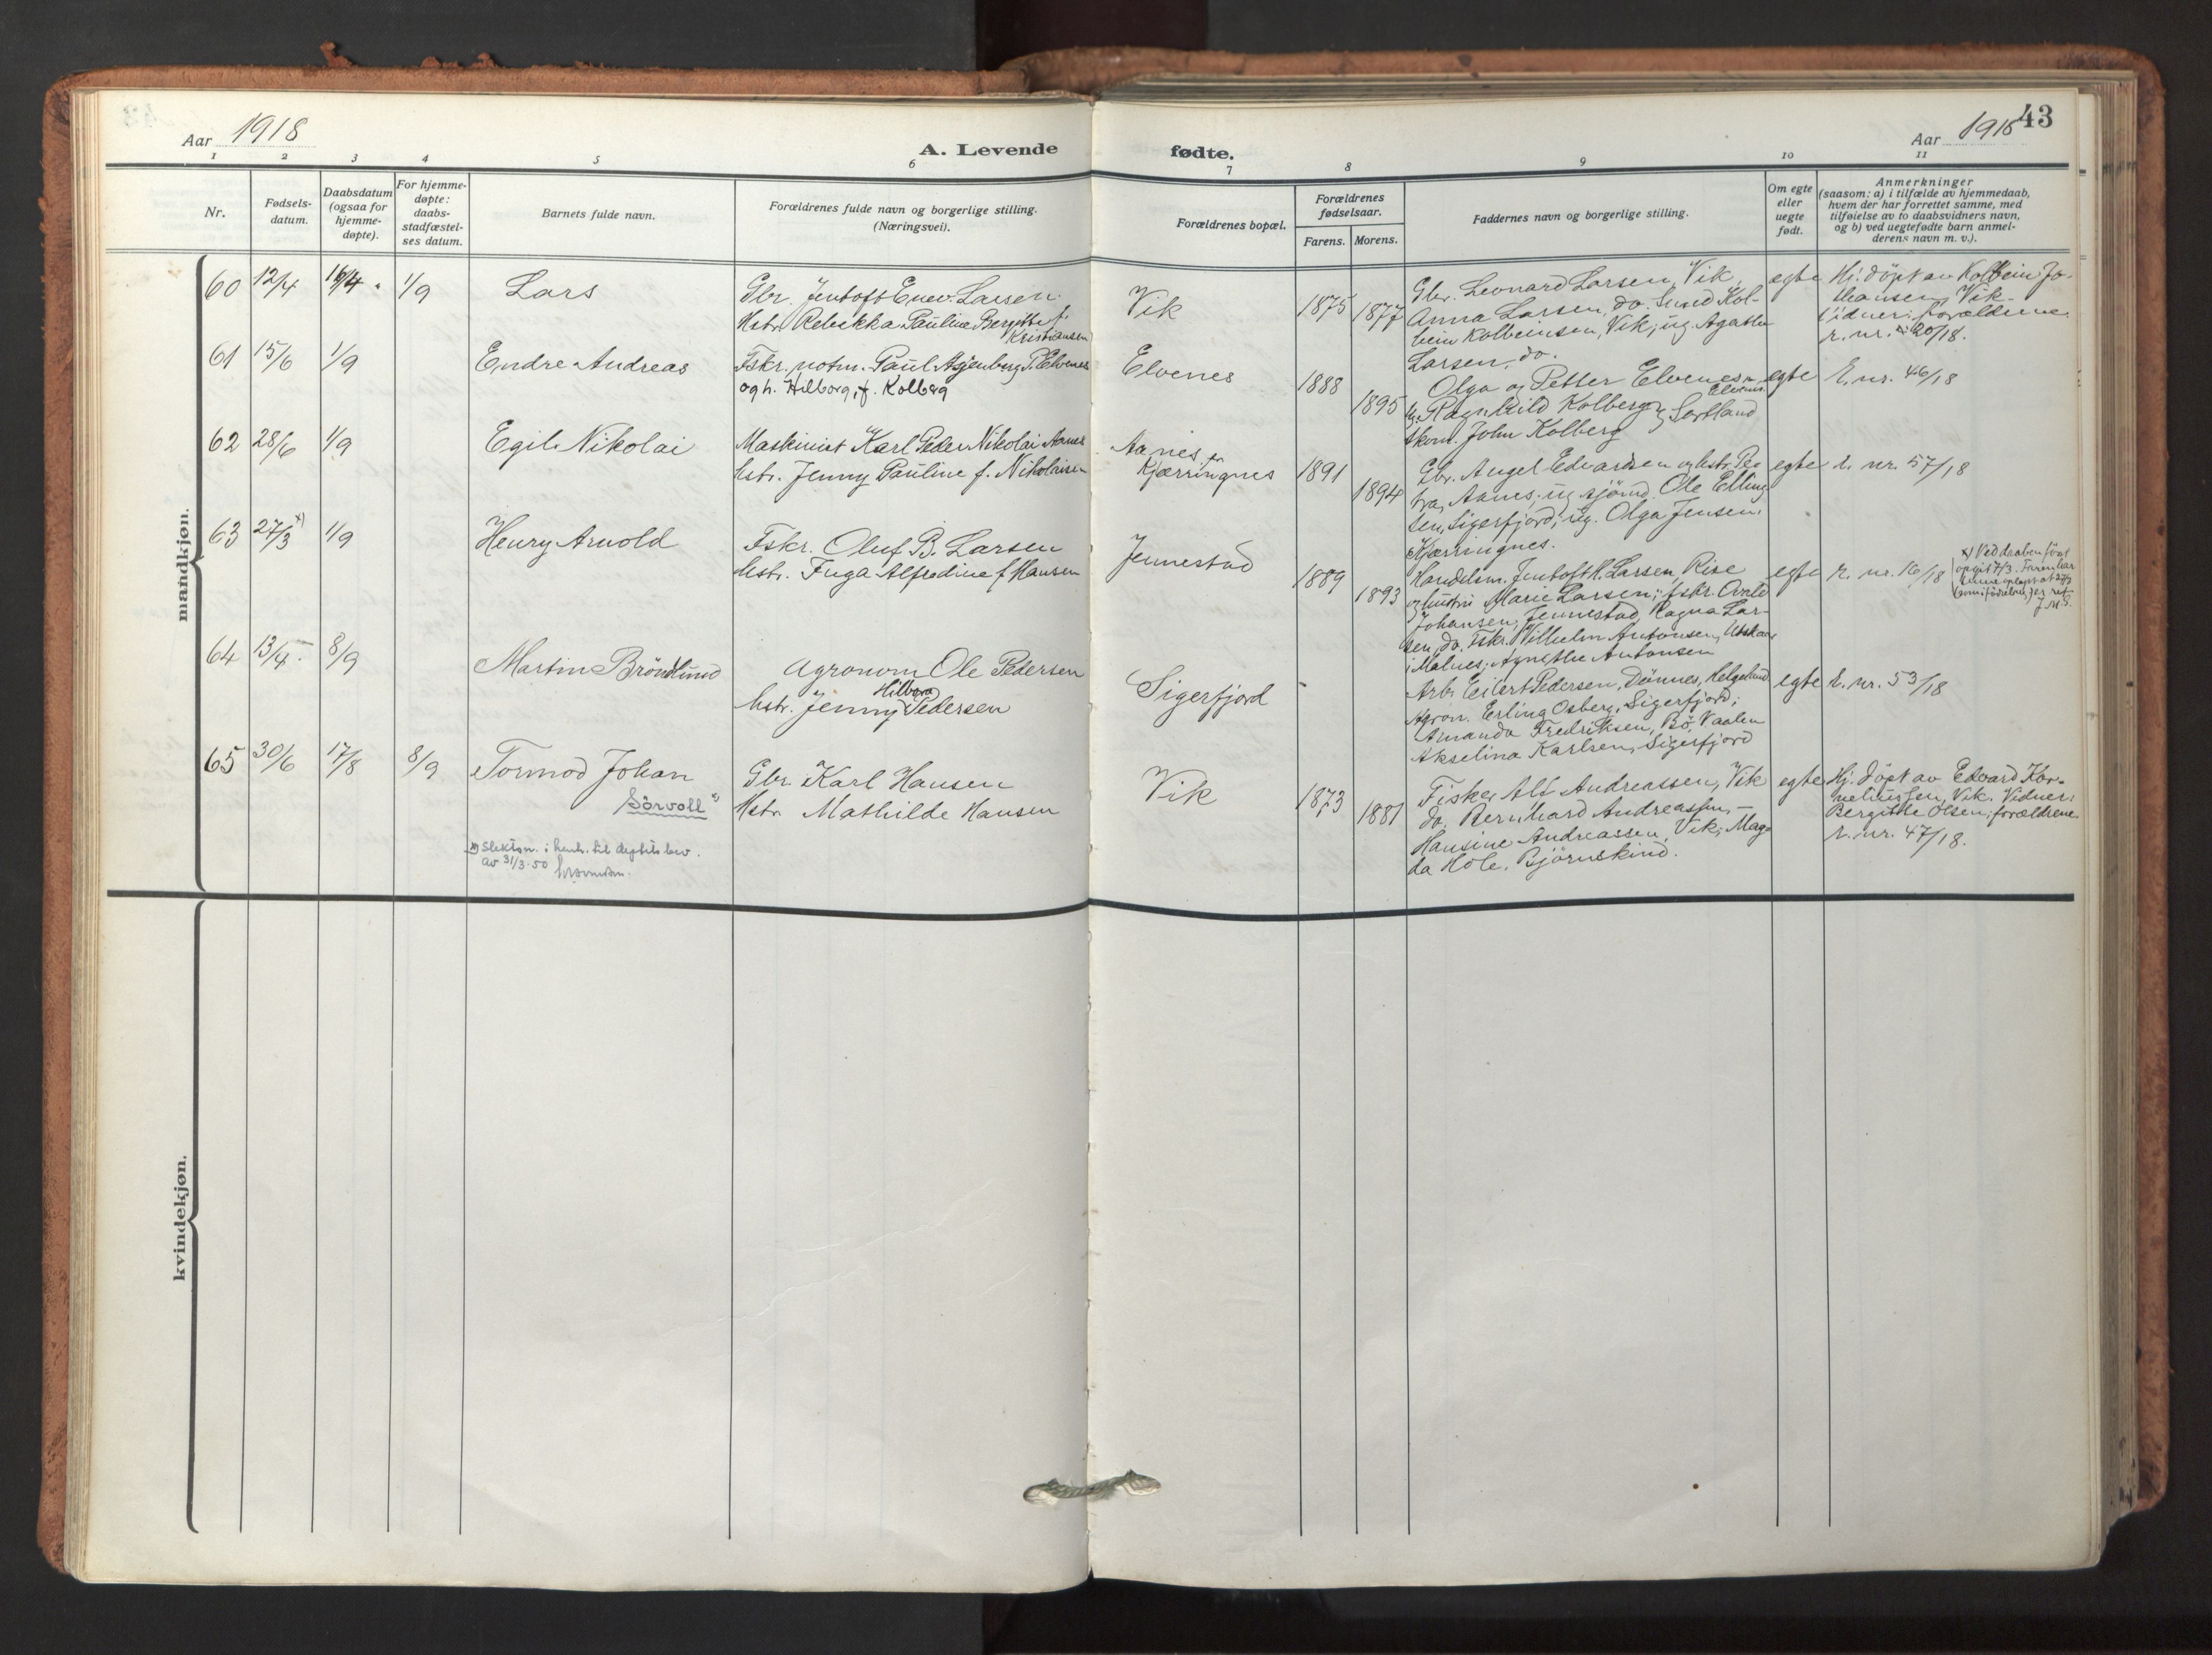 Aar 1918
A. Levende
fødte.
Aar 1918
43
1 2 3 4 5 6 7 8 9 10 11
Nr.
Fødsels-
datum.
Daabsdatum
(ogsaa for
hjemme-
døpte).
For hjemme-
døpte:
daabs-
stadfæstel-
ses datum.
Barnets fulde navn.
Forældrenes fulde navn og borgerlige stilling.
(Næringsvei).
Forældrenes bopæl.
Forældrenes
fødselsaar.
Farens. Morens.
Faddernes navn og borgerlige stilling.
Om egte
eller
uegte
født.
Anmerkninger
(saasom: a) i tilfælde av hjemmedaab,
hvem der har forrettet samme, med
tilføielse av to daabsvidners navn,
og b) ved uegtefødte barn anmel-
derens navn m. v.).
mandkjøn.
60 12/4 16/4 1/9 Lars
Gbr. Jentoft Enev. Larsen
Hstr. Rebekka Pauline Bergitte f.
Kristiansen
Vik
1875 1877
Gbr. Leonard Larsen, Vik,
Anna Larsen, do. Smed Kol-
bein Kolbeinsen, Vik; ug. Agathe
Larsen, do.
egte
Hj. döpt av Kolbein Jo-
hansen, Vik.
Vidner: forældrene.
r. nr. 20/18.
61 15/6 1/9 Endre Andreas
Fskr. notm. Paul Asjenberg P. Elvenes
og h. Hilborg, f. Kolberg
Elvenes
1888 1895
Olga og Petter Elvenes, Elvenes
Ragnhild Kolberg, Sortland
skom. John Kolberg
egte
r. nr. 46/18
62 28/6 1/9 Egil Nikolai
Maskinist Karl Peder Nikolai Aanes
hstr. Jenny Pauline f. Nikolaisen
Aanes
Kjærringnes
1891 1894
Gbr. Angel Edvardsen og hstr. Pe-
tra, Aanes; ug. sjömd. Ole Elling-
sen, Sigerfjord; ug. Olga Jensen,
Kjærringnes.
egte
r. nr. 57/18
63 27/3 x) 1/9 Henry Arnold
Fskr. Oluf B. Larsen
hstr. Inga Alfredine f. Hansen
Jennestad
1889 1893
Handelsm. Jentoft H. Larsen, Rise
og hustru Marie Larsen; fskr. Arnt
Johansen, Jennestad, Ragna Lar-
sen, do. Fskr. Vilhelm Antonsen, Utskar
i Malnes; Agnethe Antonsen
egte
r. nr. 16/18
x) Ved daaben först
opgit 7/3. Faren har
64 13/4 8/9 Martin Brönlund
Agronom Ole Pedersen
hstr. Jenny Hilbora Pedersen
Sigerfjord
-
Arb. Eilert Pedersen, Dönnes, Helgeland
Agron. Erling Osberg, Sigerfjord;
Amanda Fredriksen, Bö, Vaalen
Akselina Karlsen, Sigerfjord
egte
r. nr. 53/18
65 30/6 17/8 8/9 Tormod Johan
Sörvoll x)
Gbr. Karl Hansen
Hstr. Mathilde Hansen
Vik
1873 1881
Fisker Alf Andreassen, Vik
do. Bernhard Andreassen, -
Hansine Andreassen, Vik; Mag-
da Hole, Bjørnskind.
egte
Hj. döpt av Edvard Kor-
neliussen, Vik. Vidner:
Bergitthe Olsen; forældrene.
r. nr. 47/18.
x) Slektsn. i henh. til deptets bev.
av 31/3-50
kvindekjøn.